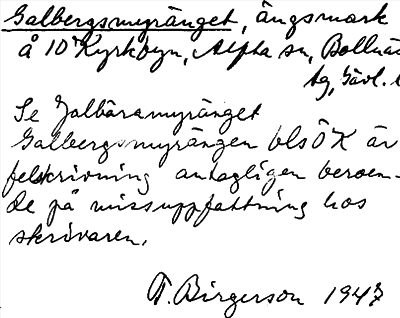 Galbergsmyränget, ängsmark
å 10 Kyrkbyn, Alfta sn, Bollnäs
tg, Gävl. l
Se Galbäramyränget
Galbergsmyrängen bls ÖK är
felskrivning antagligen beroen-
de på missuppfattning hos
skrivaren.
T. Birgerson 1947